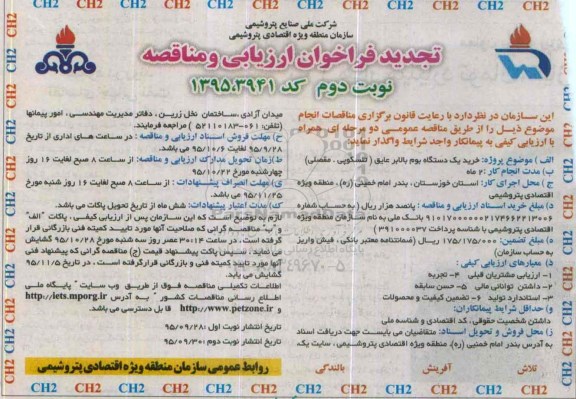 شرکت ملی صنایع پتروشیمی
سازمان منطقه ویژه اقتصادی پتروشیمی
تجدید فراخوان ارزیابی ومناقصه
نوبت دوم کد ۱۳۹۵،۳۹۴۱
این سازمان در نظردارد با رعایت قانون برگزاری مناقصات انجام
موضوع ذیل را از طریق مناقصه عمومی دو مرحله ای همراه
با ارزیابی کیفی به پیمانکار واجد شرایط واگذار نماید.
الف) موضوع پروژه: خرید یک دستگاه بوم بالابر عایق (تلسکوپی، مفصلی)
ب) مدت انجام کار: ۲ ماه
ج) محل اجرای کار: استان خوزستان، بندر امام خمینی (ره)، منطقه ویژه
اقتصادی پتروشیمی
د) مبلغ خرید اسناد ارزیابی و مناقصه: پانصد هزار ریال (به حساب شماره
بانک ملی به نام سازمان منطقه ویژه
اقتصادی پتروشیمی با شناسه پرداخت ۳۹۱۰۰۰۰۳۷)
ه) مبلغ تضمین: ۱۷۵/۱۷۵/۰۰۰ ریال (ضمانتنامه معتبر بانکی، فیش واریز
به حساب سازمان)
ذ) معیارهای ارزیابی کیفی:
۱- ارزیابی مشتریان قبلی ۴- تجربه
۲- داشتن توانائی مالی ۵- حسن سابقه
۳- استاندارد تولید ۶- تضمین کیفیت و محصولات
و) حداقل شرایط پیمانکاران:
داشتن شخصیت حقوقی، کد اقتصادی و شناسه ملی
ز) محل فروش و تحویل اسناد: متقاضیان می بایست جهت دریافت اسناد
به آدرس بندر امام خمینی (ره)، منطقه ویژه اقتصادی پتروشیمی، سایت یک،
میدان آزادی، ساختمان نخل زرین، دفاتر مدیریت مهندسی، امور پیمانها
(تلفن: ۰۶۱-۵۲۱۱۰۱۸۳) مراجعه فرمایند.
ح) مهلت فروش اسناد ارزیابی و مناقصه: در ساعت های اداری از تاریخ
۹۵/۹/۲۸ لغایت ۹۵/۱۰/۶ می باشد.
ط) زمان تحویل مدارک ارزیابی و مناقصه: از ساعت ۸ صبح لغایت ۱۶ روز
چهارشنبه مورخ ۹۵/۱۰/۲۲
ی) مهلت انصراف پیشنهادات: از ساعت ۸ صبح لغایت ۱۶ روز شنبه مورخ
۹۵/۱۱/۲۵ می باشد.
ک) مدت اعتبار پیشنهادات: شش ماه از تاریخ تحویل پاکات می باشد.
لازم به توضیح است که این سازمان پس از ارزیابی کیفی، پاکات "الف"
و "ب" مناقصه گرانی که صلاحیت آنها مورد تایید کمیته فنی بازرگانی قرار
گرفته است، در ساعت ۳۰:۱۴ عصر روز سه شنبه مورخ ۹۵/۱۰/۲۸ گشایش
می نماید. سپس پاکت پیشنهاد قیمت (ج) مناقصه گرانی که پیشنهاد فنی
آنها مورد تایید کمیته فنی و بازرگانی قرارگرفته است، در تاریخ ۹۵/۱۱/۵
گشایش می یابد.
اطلاعات تکمیلی مناقصه فوق از طریق وب سایت "پایگاه ملی
اطلاع رسانی مناقصات کشور" به آدرس http://iets.mporg.ir
و http://www.petzone.ir قابل دسترسی می باشد.
تاریخ انتشار نوبت اول: ۹۵/۰۹/۲۸
تاریخ انتشار نوبت دوم: ۹۵/۰۹/۳۰
روابط عمومی سازمان منطقه ویژه اقتصادی پتروشیمی
تلاش آفرینش بالندگی
CH2 CH2 CH2 CH2 CH2 CH2 CH2 CH2 CH2